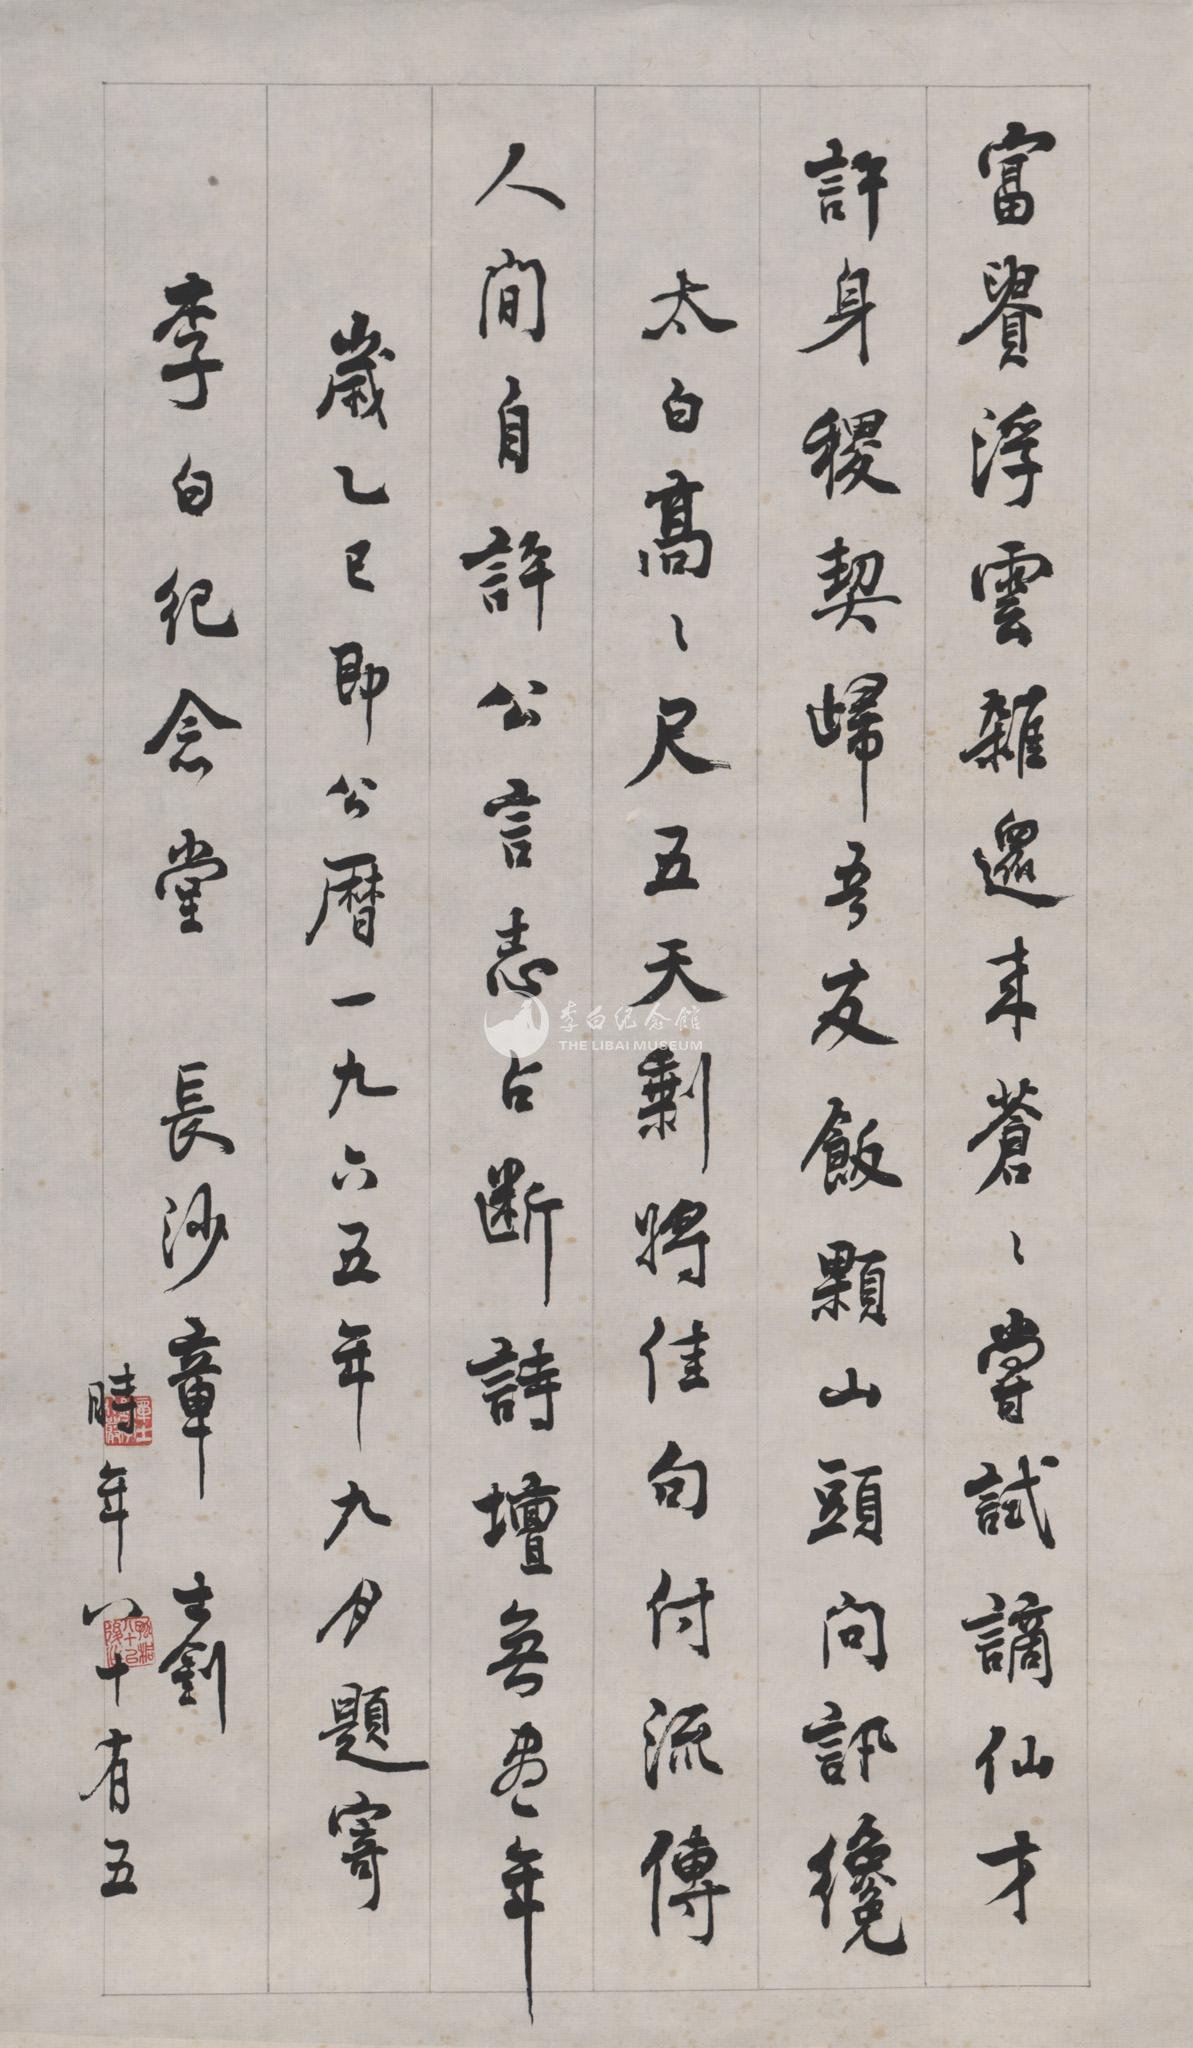 富貴浮雲雜遝來蒼〻嘗試謫仙才
許身稷契歸吾友飯顆山頭問訊纔
太白高〻尺五天剩將佳句付流傳
人間自許公言志占斷詩壇無盡年
歲乙巳即公曆一九六五年九月題寄
李白紀念堂 長沙章士釗
時年八十有五
李白纪念館
THE LIBAI MUSEUM